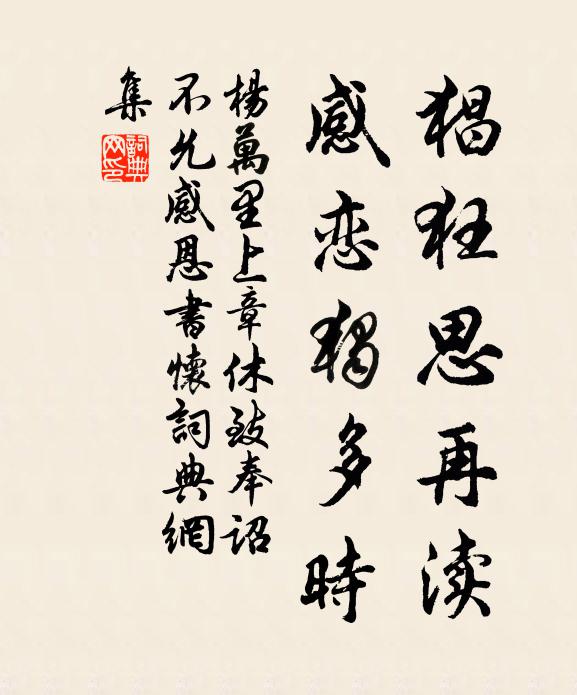 猖狂思再渎
感恋独多時
楊萬里上章休致奉詔
不允感恩書懷詞典網
集
詞典網印